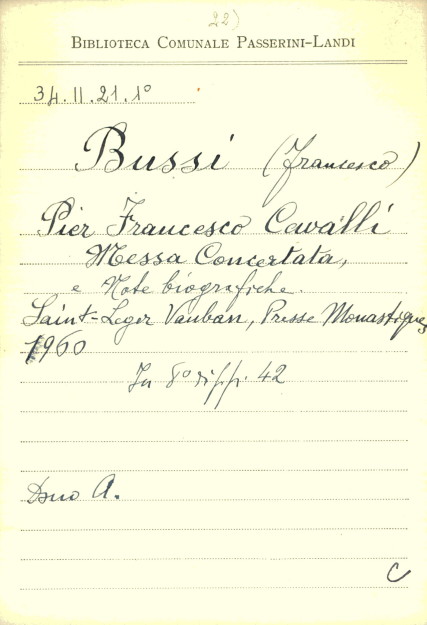 22)
BIBLIOTECA COMUNALE PASSERINI-LANDI
34.II.21.1°
Bussi (Francesco)
Pier Francesco Cavalli
Messa Concertata,
e Note biografiche.
Saint-Leger Vauban, Presse Monastiques
1960
In 8° di p.p. 42
Dono A.
C